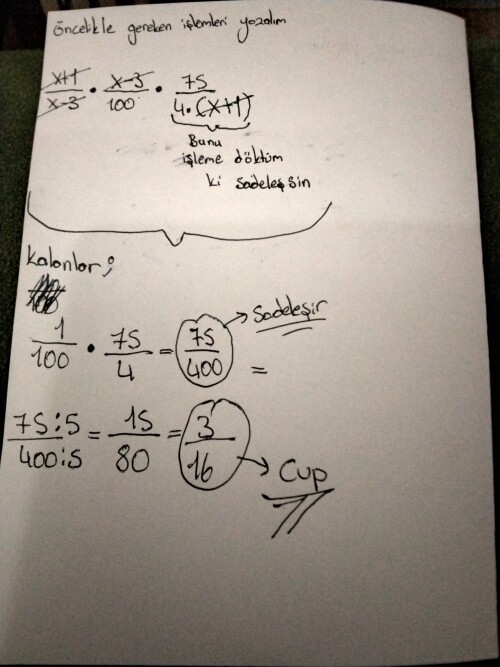 öncelikle gereken işlemleri yazalım
x+1/x-3 • x-3/100 • 75/4•(x+1)
Bunu
işleme döktüm
ki sadeleşsin
Kalanlar;
1/100 • 75/4 = 75/400 → Sadeleşir
=
75:5/400:5 = 15/80 = 3/16 → Cvp